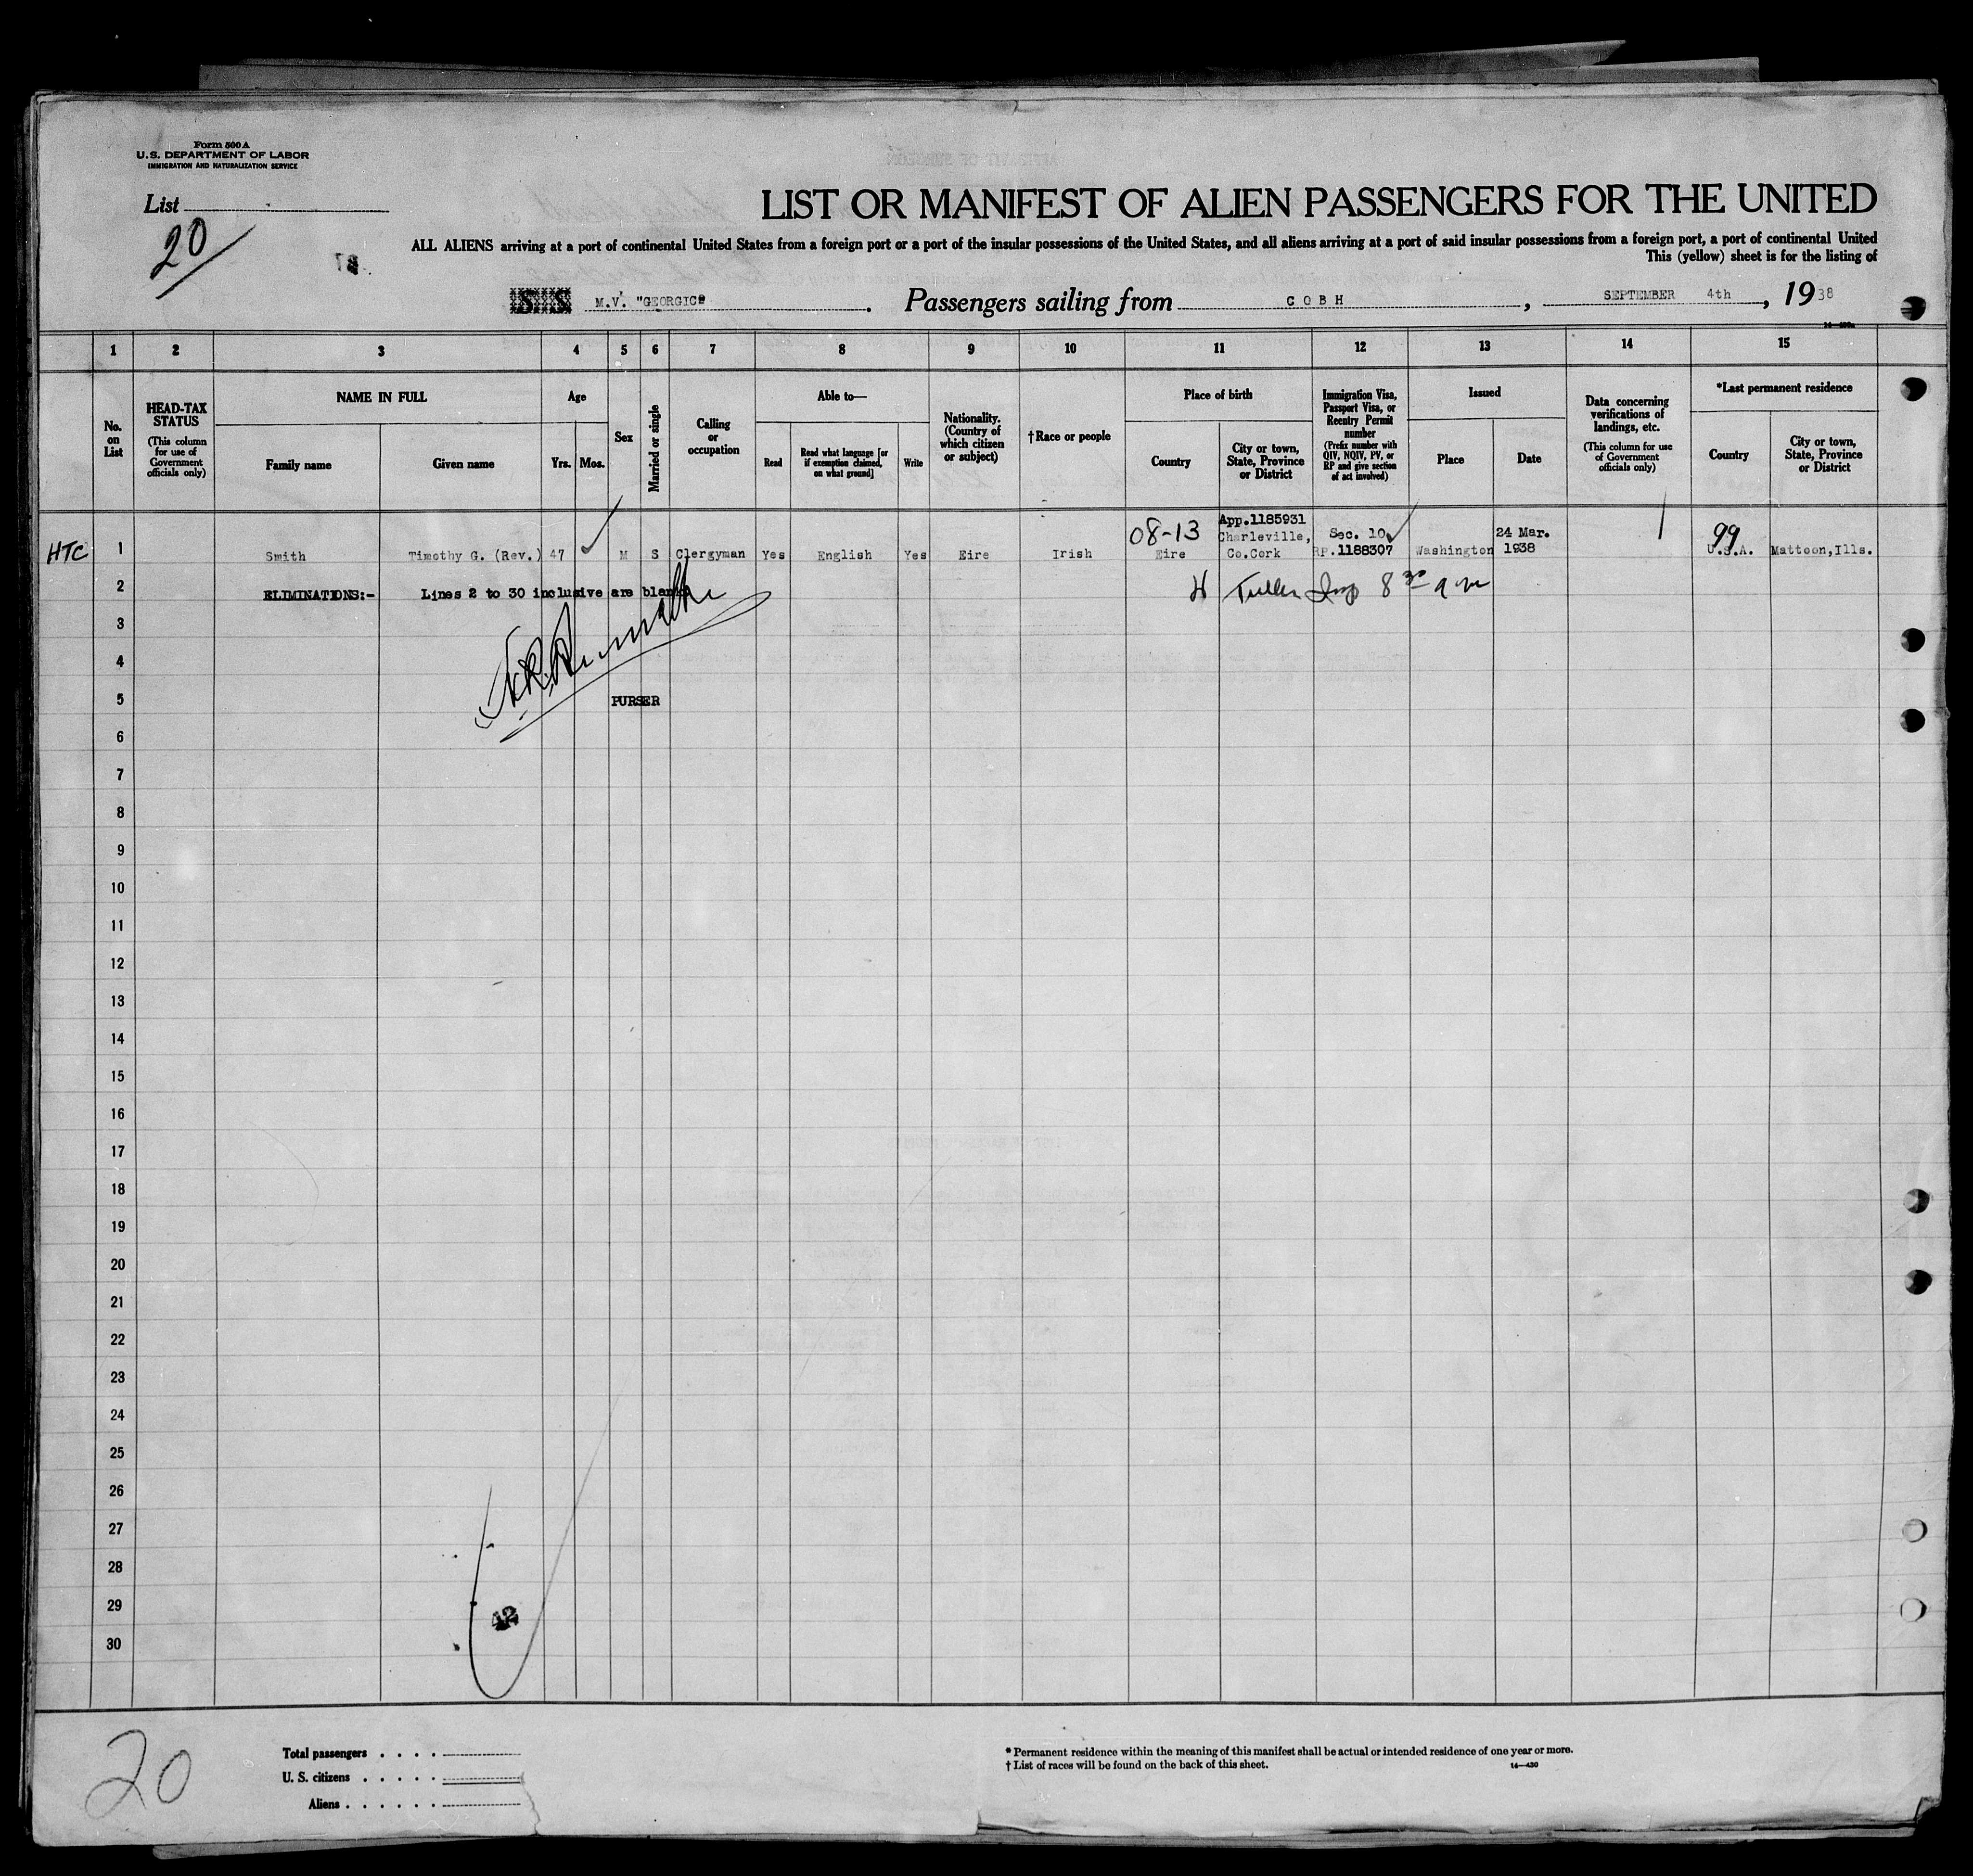 Form 500 A
U.S. DEPARTMENT OF LABOR
IMMIGRATION AND NATURALIZATION SERVICE
List
20
LIST OR MANIFEST OF ALIEN PASSENGERS FOR THE UNITED
ALL ALIENS arriving at a port of continental United States from a foreign port or a port of the insular possessions of the United States, and all aliens arriving at a port of said insular possessions from a foreign port, a port of continental United
This (yellow) sheet is for the listing of
S S M.V. "GEORGIC" . Passengers sailing from COBH , SEPTEMBER 4th , 1938
1 2 3 4 5 6 7 8 9 10 11 12 13 14 15
No. on List
HEAD-TAX STATUS (This column for use of Government officials only)
NAME IN FULL
Family name Given name
Age
Yrs. Mos.
Sex
Married or single
Calling or occupation
Able to—
Read Read what language [or if exemption claimed, on what ground] Write
Nationality. (Country of which citizen or subject)
†Race or people
Place of birth
Country City or town, State, Province or District
Immigration Visa, Passport Visa, or Reentry Permit number (Prefix number with QIV, NQIV, PV, or RP and give section of act involved)
Issued
Place Date
Data concerning verifications of landings, etc. (This column for use of Government officials only)
*Last permanent residence
Country City or town, State, Province or District
08-13 App.1185931 Sec. 10 24 Mar. 99
HTC 1 Smith Timothy G. (Rev.) 47 M S Clergyman Yes English Yes Eire Irish Eire Charleville, Co.Cork RP.1188307 Washington 1938 U.S.A. Mattoon,Ills.
2 ELIMINATIONS:- Lines 2 to 30 inclusive are blank 8 30 a m
3
4
5 PURSER
6
7
8
9
10
11
12
13
14
15
16
17
18
19
20
21
22
23
24
25
26
27
28
29
42
30
20
Total passengers . . . .
U. S. citizens . . . . .
Aliens . . . . . .
* Permanent residence within the meaning of this manifest shall be actual or intended residence of one year or more.
† List of races will be found on the back of this sheet. 14—430